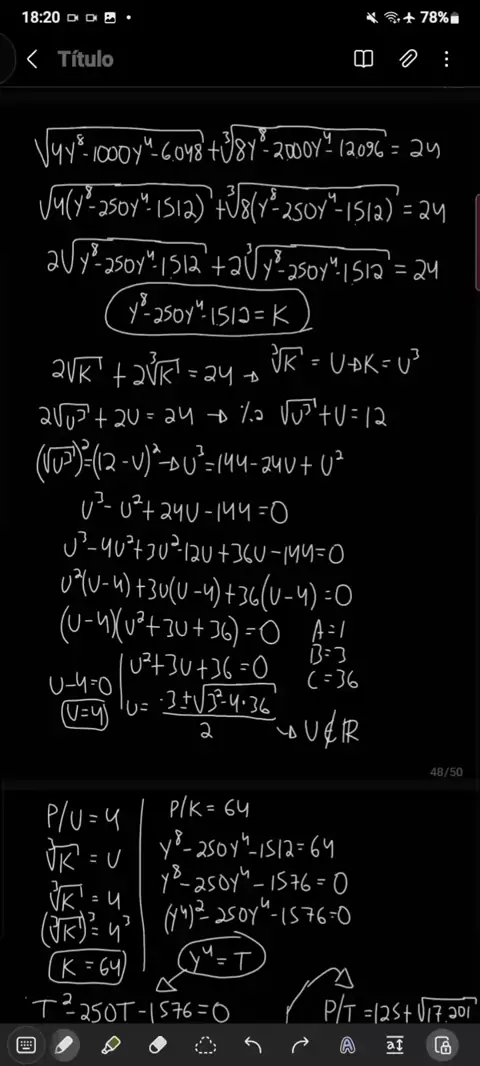 18:20 78%
Título
√4y⁸-1000y⁴-6.048 + ³√8y⁸-2000y⁴-12096 = 24
√4(y⁸-250y⁴-1512) + ³√8(y⁸-250y⁴-1512) = 24
2√y⁸-250y⁴-1512 + 2³√y⁸-250y⁴-1512 = 24
y⁸-250y⁴-1512 = K
2√K + 2³√K = 24 → ³√K = U → K = U³
2√U³ + 2U = 24 → %2 √U³ + U = 12
(√U³)² = (12-U)² → U³ = 144-24U + U²
U³ - U² + 24U - 144 = 0
U³-4U²+3U²-12U+36U-144=0
U²(U-4)+3U(U-4)+36(U-4)=0
(U-4)(U²+3U+36)=0
A=1
B=3
C=36
U-4=0
U=4
U²+3U+36=0
U= -3±√3²-4·36
2
→ U∉ℝ
48/50
P/U=4
³√K = U
³√K = 4
(³√K)³ = 4³
K = 64
P/K = 64
y⁸-250y⁴-1512=64
y⁸-250y⁴-1576=0
(y⁴)²-250y⁴-1576=0
y⁴=T
T²-250T-1576=0
P/T=125+√17.201